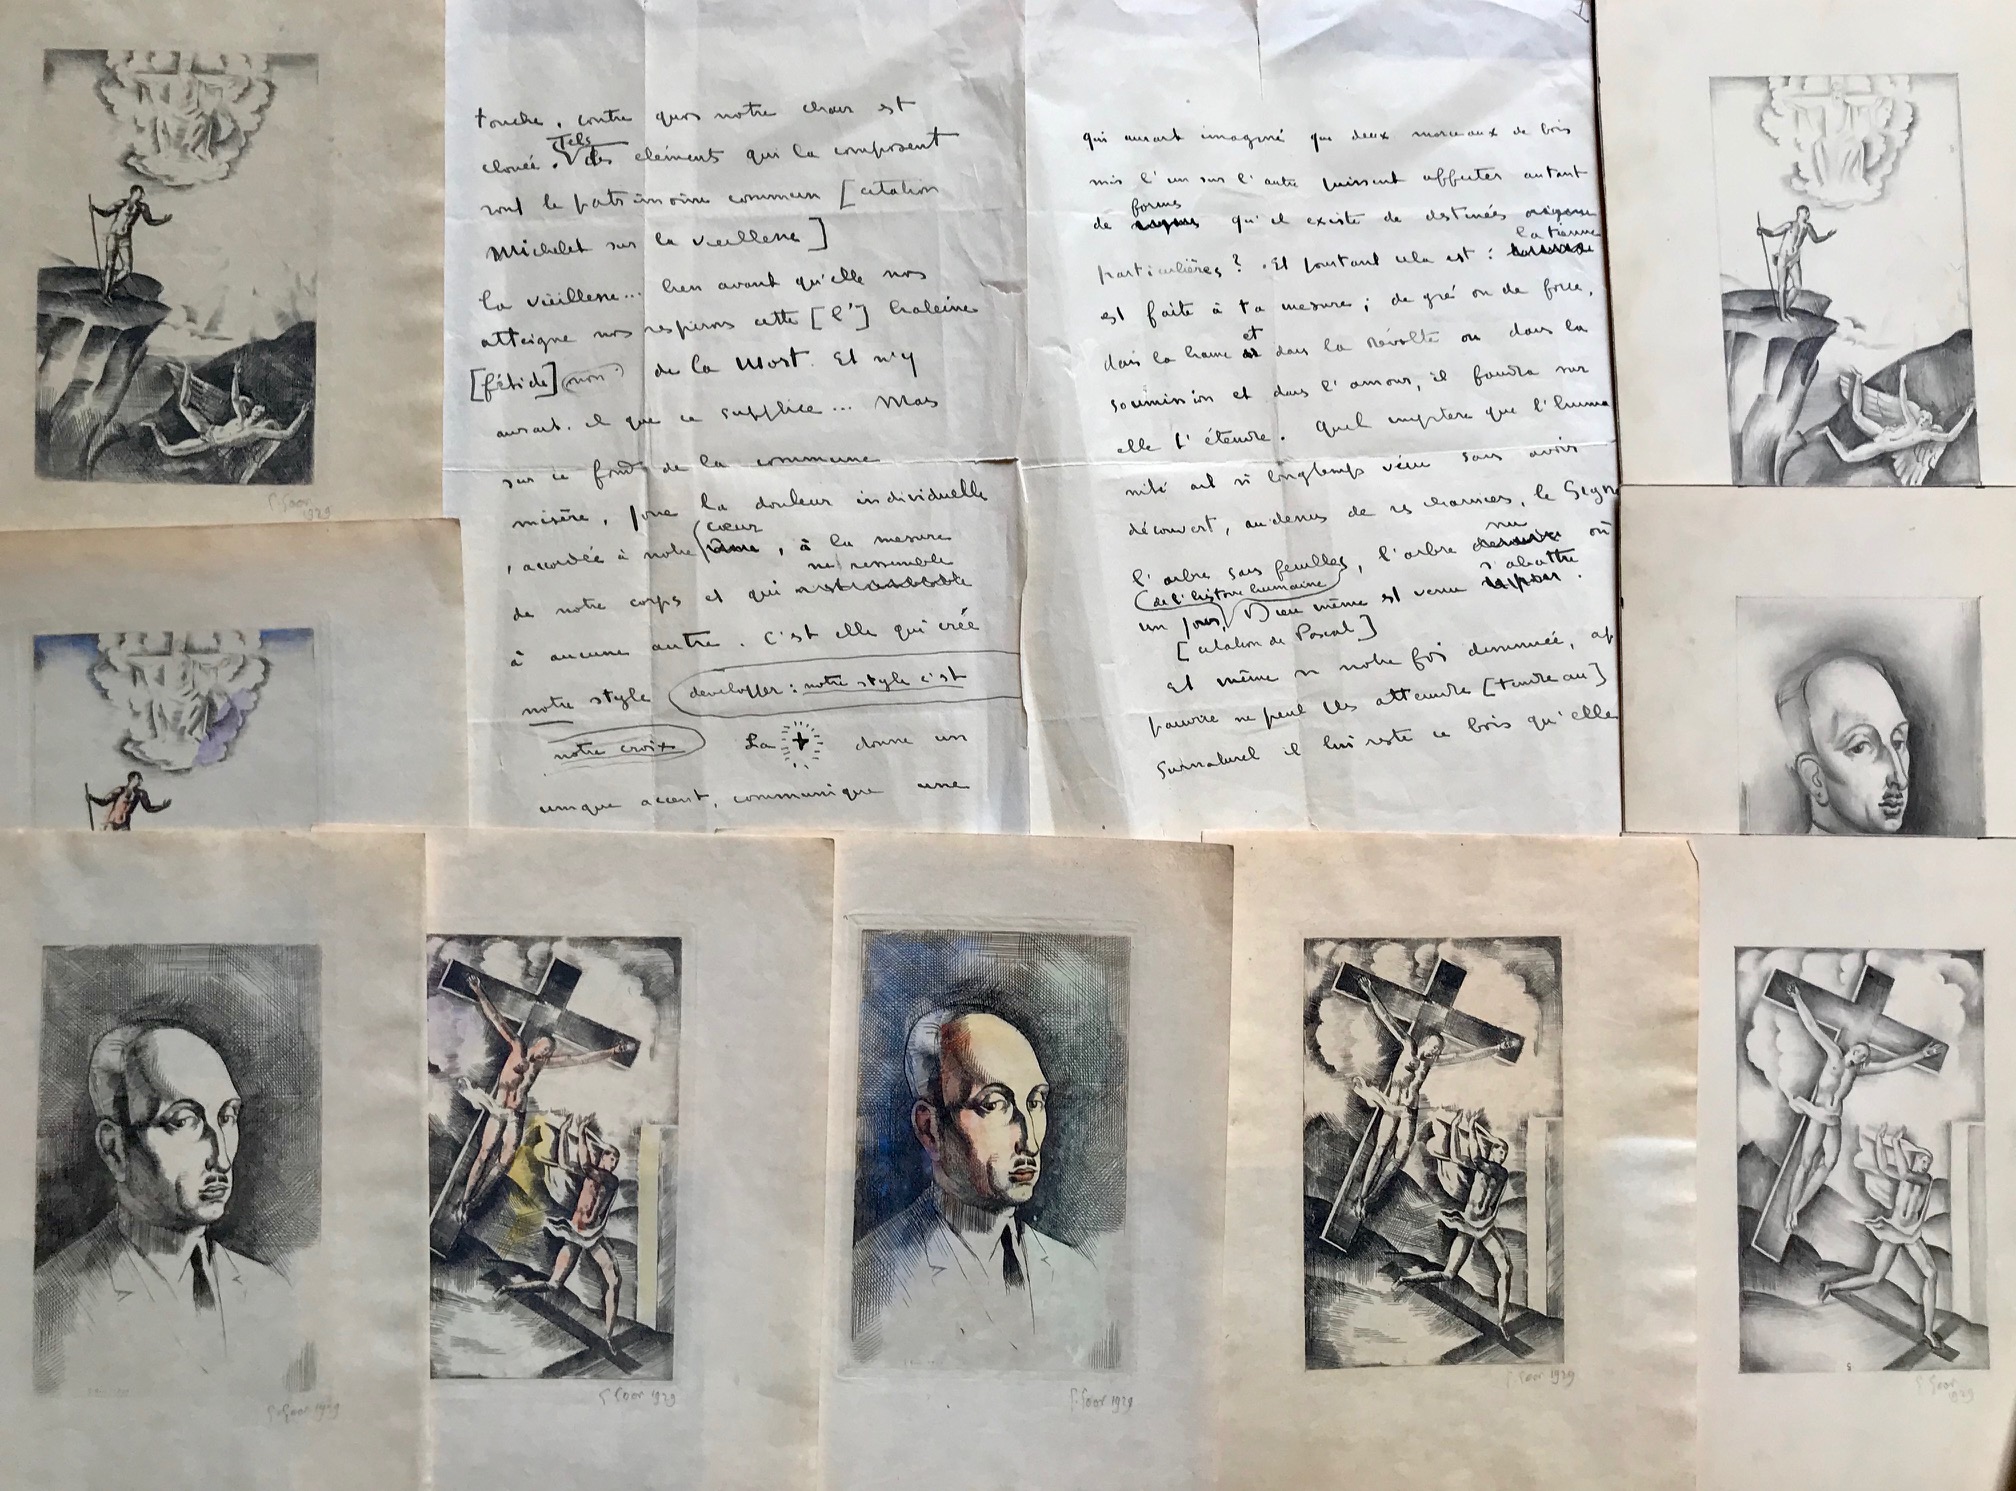 touche, contre quoi notre chair est
clouée. Tels
des éléments qui la composent
sont le patrimoine commun [citation
Michelet sur la vieillesse]
la vieillesse... bien avant qu'elle nous
atteigne nous respirons cette [l'] haleine
[fétide] (non?) de la Mort. Et n'y
aurait-il que ce supplice... Mais
sur ce fond de la commune
misère, joue la douleur individuelle
, accordée à notre cœur
âme, à la mesure
de notre corps et qui ne ressemble
à aucune autre. C'est elle qui crée
notre style (developper: notre style c'est
notre croix) La + donne un
unique accent, communique une
1
qui aurait imaginé que deux morceaux de bois
mis l'un sur l'autre puissent affecter autant
de formes qu'il existe de destinées
particulières? Et pourtant cela est: la tienne
est faite à ta mesure; de gré ou de force,
dans la haine et dans la révolte ou dans la
soumission et dans l'amour, il faudra sur
elle t'étendre. Quel mystère que l'huma
nité ait si longtemps vécu sans avoir
découvert, au-dessus de ses charniers, le Signe
l'arbre sans feuilles, l'arbre nu où
(de l'histoire humaine)
un jour, Dieu même est venu s'abattre.
[citation de Pascal]
Et même si notre foi diminuée, ap
pauvrie ne peut les atteindre [tendre au]
surnaturel il lui reste ce bois qu'elle
G. Goor
1929
G. Goor 1929
G. Goor 1929
G. Goor 1929
G. Goor 1929
G. Goor
1929